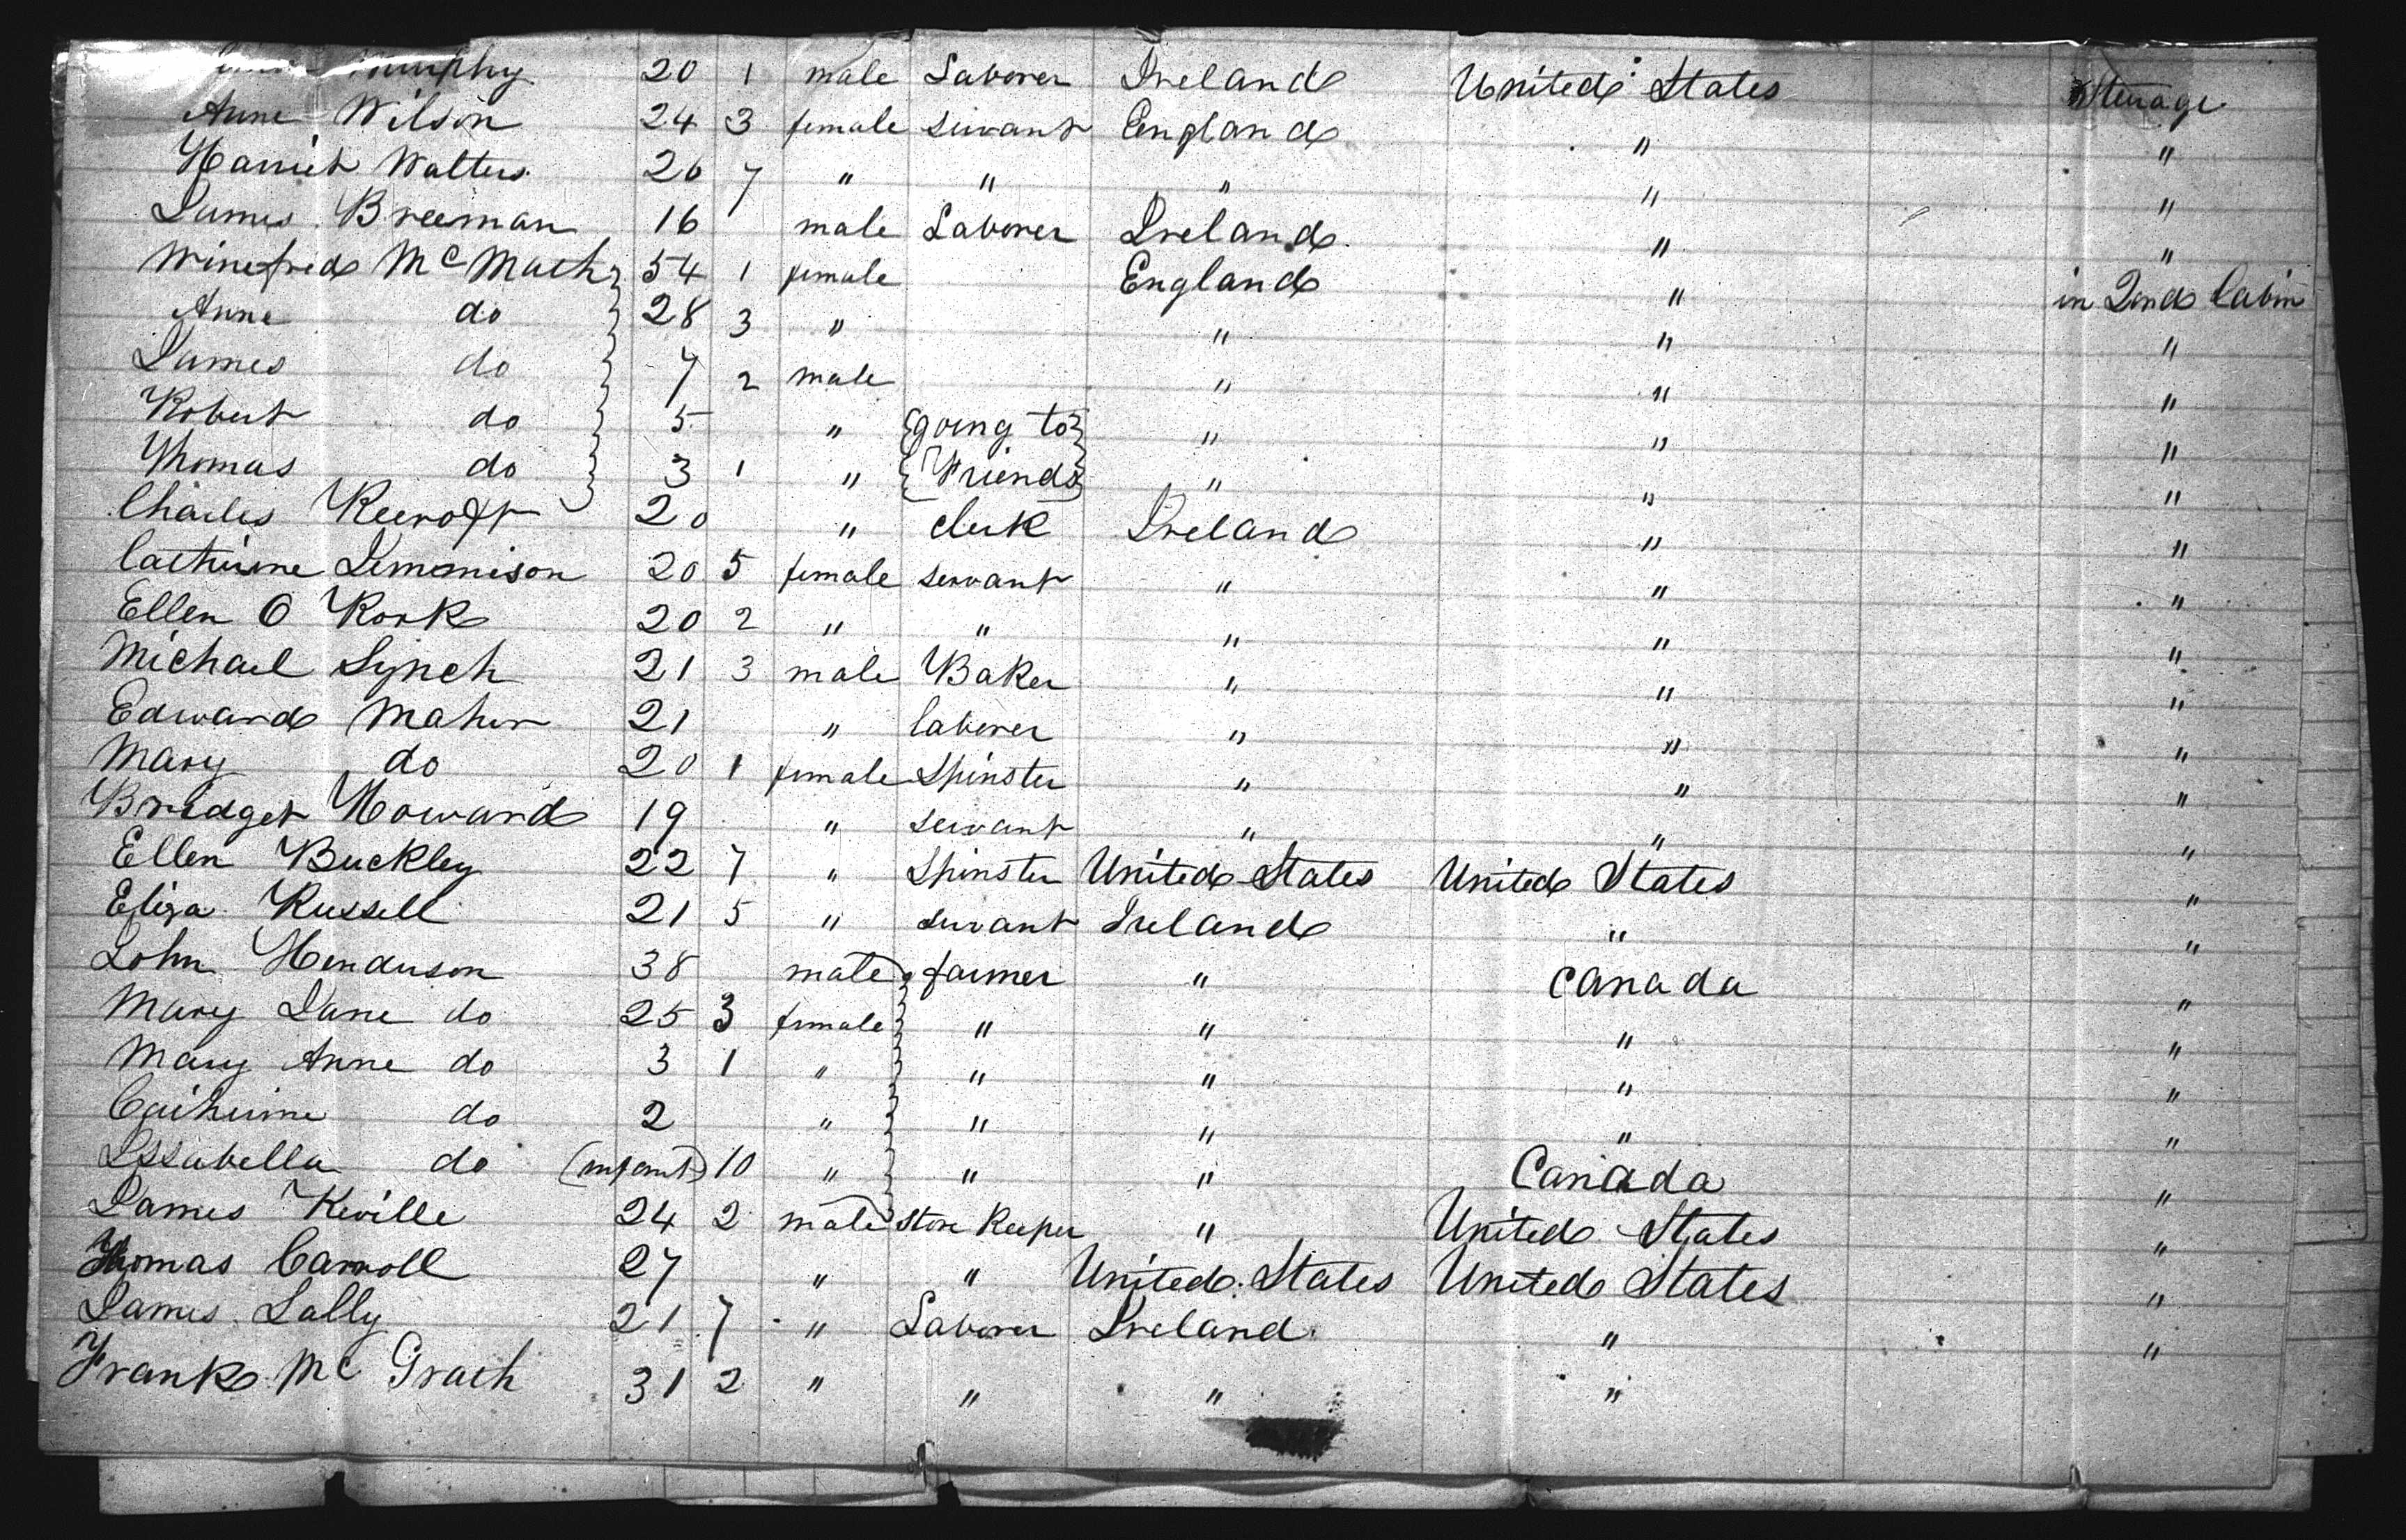 Murphy 20 1 male Laborer Ireland United States Steerage
Anne Wilson 24 3 female servant England " "
Harriet Walters 26 7 " " " " "
James Breeman 16 male Laborer Ireland " "
Winefred McMath 54 1 female England " in 2nd Cabin
Anne do 28 3 " " " "
James do 7 2 male " " "
Robert do 5 " {going to} " " "
Thomas do 3 1 " {Friends} " " "
Charles 20 " clerk Ireland " "
Catherine Jemmison 20 5 female servant " " "
Ellen O Rork 20 2 " " " " "
Michael Lynch 21 3 male Baker " " "
Edward Maher 21 " laborer " " "
Mary do 20 1 female Spinster " " "
Bridget Howard 19 " servant " " "
Ellen Buckley 22 7 " Spinster United States United States "
Eliza Russell 21 5 " servant Ireland " "
John Henderson 38 male farmer " Canada "
Mary Jane do 25 3 female " " " "
Mary Anne do 3 1 " " " " "
Catherine do 2 " " " " "
Issabella do (infant) 10 " " " Canada "
James Keville 24 2 male store Keeper " United States "
Thomas Carroll 27 " " United States United States "
James Lally 21 7 " Laborer Ireland " "
Frank Mc Grath 31 2 " " " "